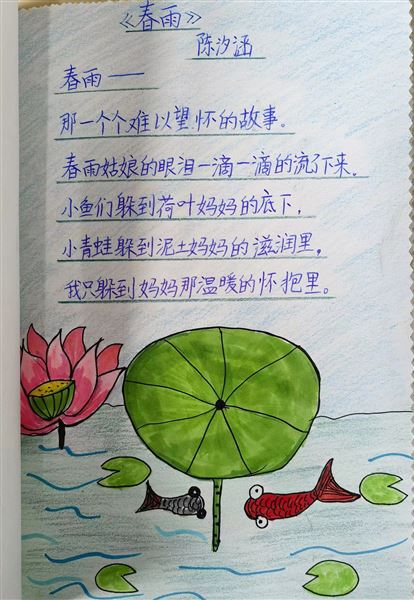 《春雨》
陈汐涵
春雨——
那一个个难以望怀的故事。
春雨姑娘的眼泪一滴一滴的流了下来。
小鱼们躲到荷叶妈妈的底下，
小青蛙躲到泥土妈妈的滋润里，
我只躲到妈妈那温暖的怀抱里。